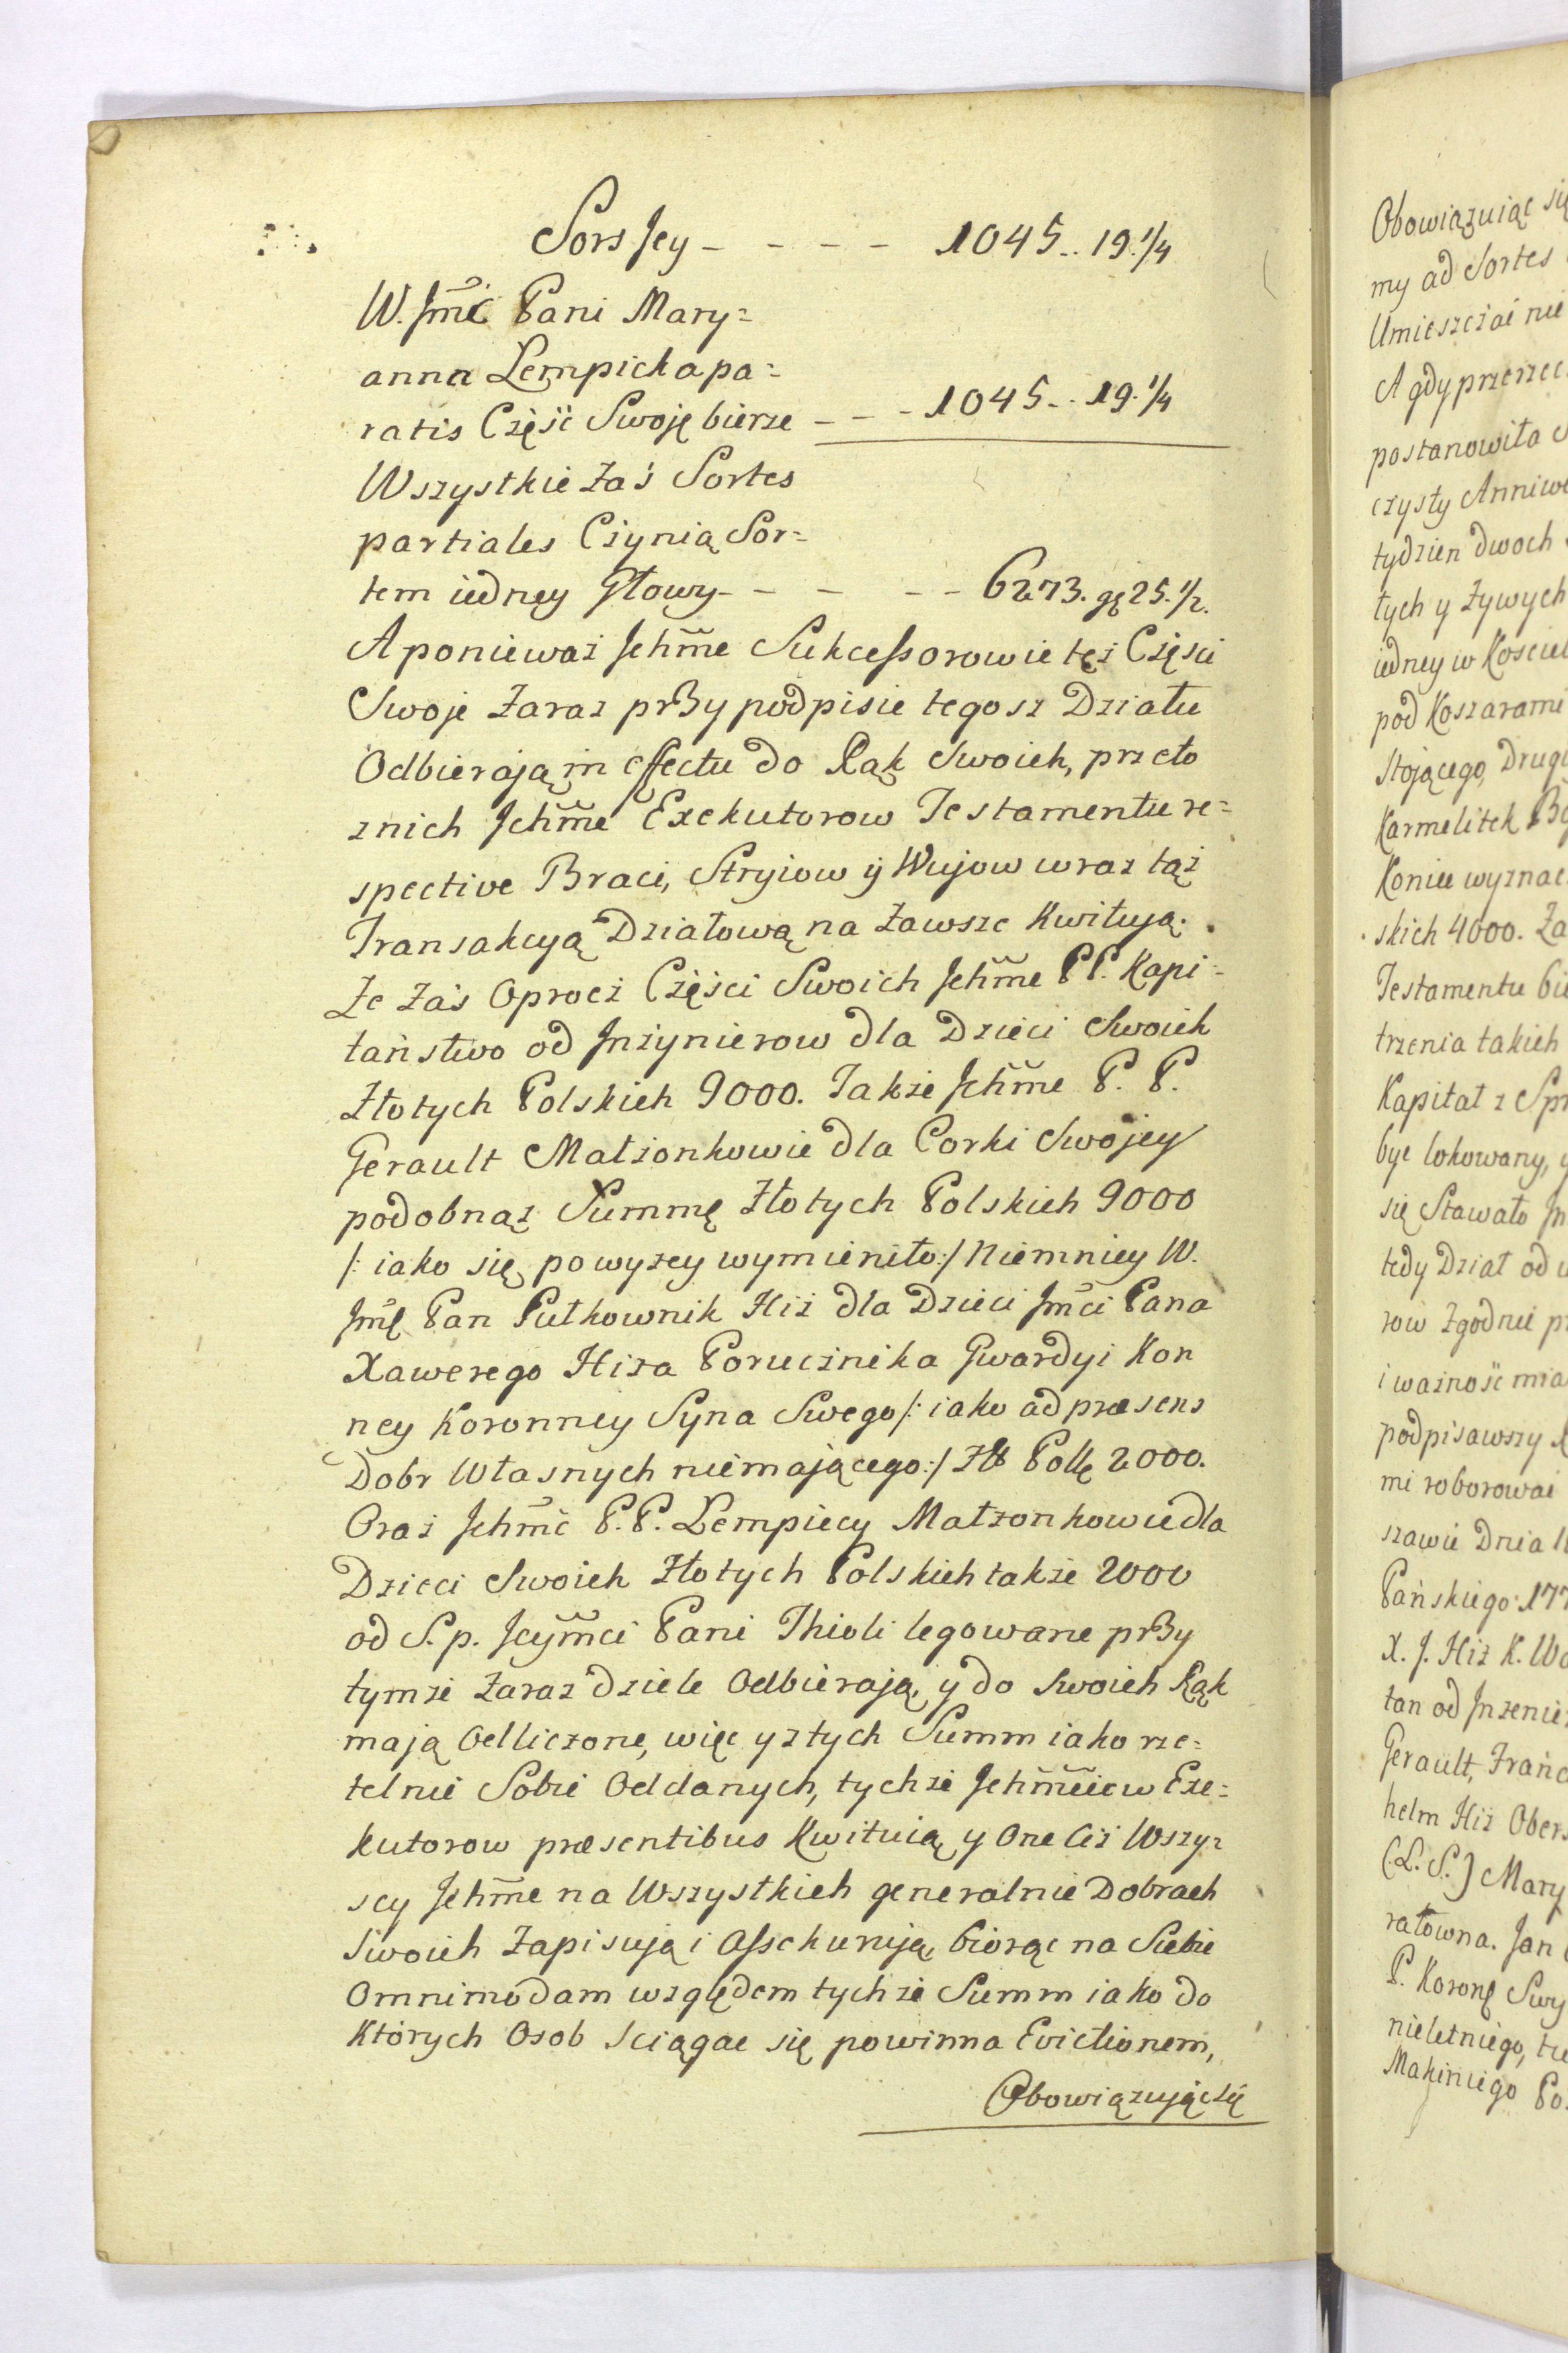 Sors Jey - - - - 1045.. 19.1/4
W. Jm̃ć Pani Mary=
anna Lempicka pa=
ratis Część Swoję bierze - - - 1045.. 19.1/4
Wszystkie zaś Sortes
partiales Czynią Sor=
tem iedney Głowy - - - - - 6273. gę 25.1/2.
A ponieważ Jchm̃e Sukcessorowie też Części
Swoje zaraz przy podpisie tegosz Działu
Odbierają in effectu do Rąk Swoich, przeto
z nich Jchm̃e Exekutorow Testamentu re=
spective Braci, Stryiow ÿ Wujow wraz tąż
Transakcyą Działową na zawsze Kwitują.
Że zaś Oprocz Części Swoich Jchm̃e PP. Kapi=
taństwo od Jnżynierow dla Dzieci Swoich
Złotych Polskich 9000. Takze Jchm̃e P. P.
Gerault Małżonkowie dla Corki Swojey
podobnąż Summę Złotych Polskich 9000
/: iako się powyżey wymieniło :/ Niemniey W.
Jmę Pan Pułkownik Hiż dla Dzieci Jm̃ci Pana
Xawerego Hiża Porucznika Gwardyi Kon
ney Koronney Syna Swego /: iako ad præsens
Dobr Własnych niemającego :/ Złł Polłę 2000.
Oraz Jchm̃ć P.P. Lempiccy Małżonkowie dla
Dzieci Swoich Złotych Polskich także 2000
od S.p. Jeym̃ci Pani Thioli legowane przy
tymże zaraz dziele Odbierają, y do Swoich Rąk
mają Odliczone, więc y z tych Summ iako rze=
telnie Sobie Oddanych, tychże Jchm̃ciow Exe=
kutorow præsentibus Kwituią y One Ciż Wszy=
scy Jchm̃e na Wszystkich generalnie Dobrach
Swoich Zapisują i Assekurują, biorąc na Siebie
Omnimodam względem tychże Summ iako do
Których Osob sciągac się powinna Evictionem,
Obowiązując Się
Obowiązuiąc się
my ad Sortes
Umieszczać nie
A gdy przerzec
postanowiła
czysty Anniwe
tydzien dwoch
łych y Żywych
iedney w Kosciel
pod Koszarami
Stojącego, Drugi
Karmelitek Bo
Koniec wyznac
skich 4000. Za
Testamentu bie
trzenia takich
Kapitał z Spr
byc lokowany, y
się Stawało Jn
tedy Dział od
row Zgodnie pr
i ważność mia
podpisawszy
mi roborowai
szawie Dnia 1
Pańskiego 177
X. J. Hiż K. Wa
tan od Jnżenie
Gerault, Franc
helm Hiż Obers
(L. S.) Mary
ratowna. Jan
P. Koronę Swy
nieletniego, tu
Makiniego Po